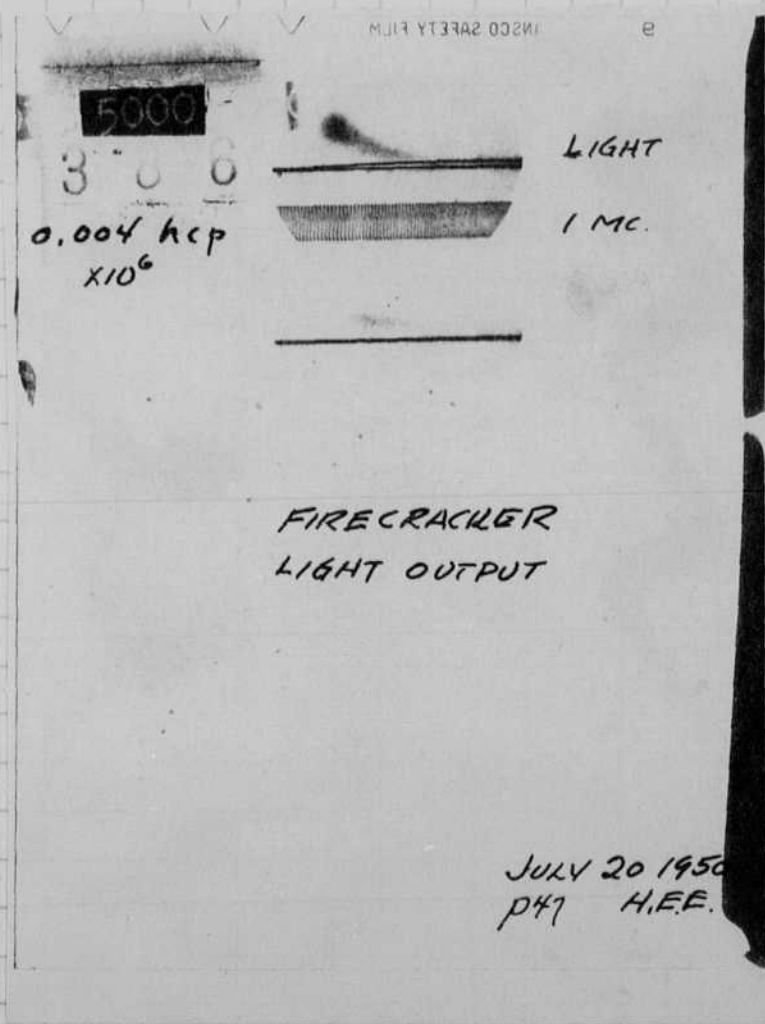 ANSCO SAFETY FILM 9
5000
3 0 8
LIGHT
0.004 hcp
X10⁶
1 MC.
FIRECRACKER
LIGHT OUTPUT
JULY 20 1950
P47 H.E.E.